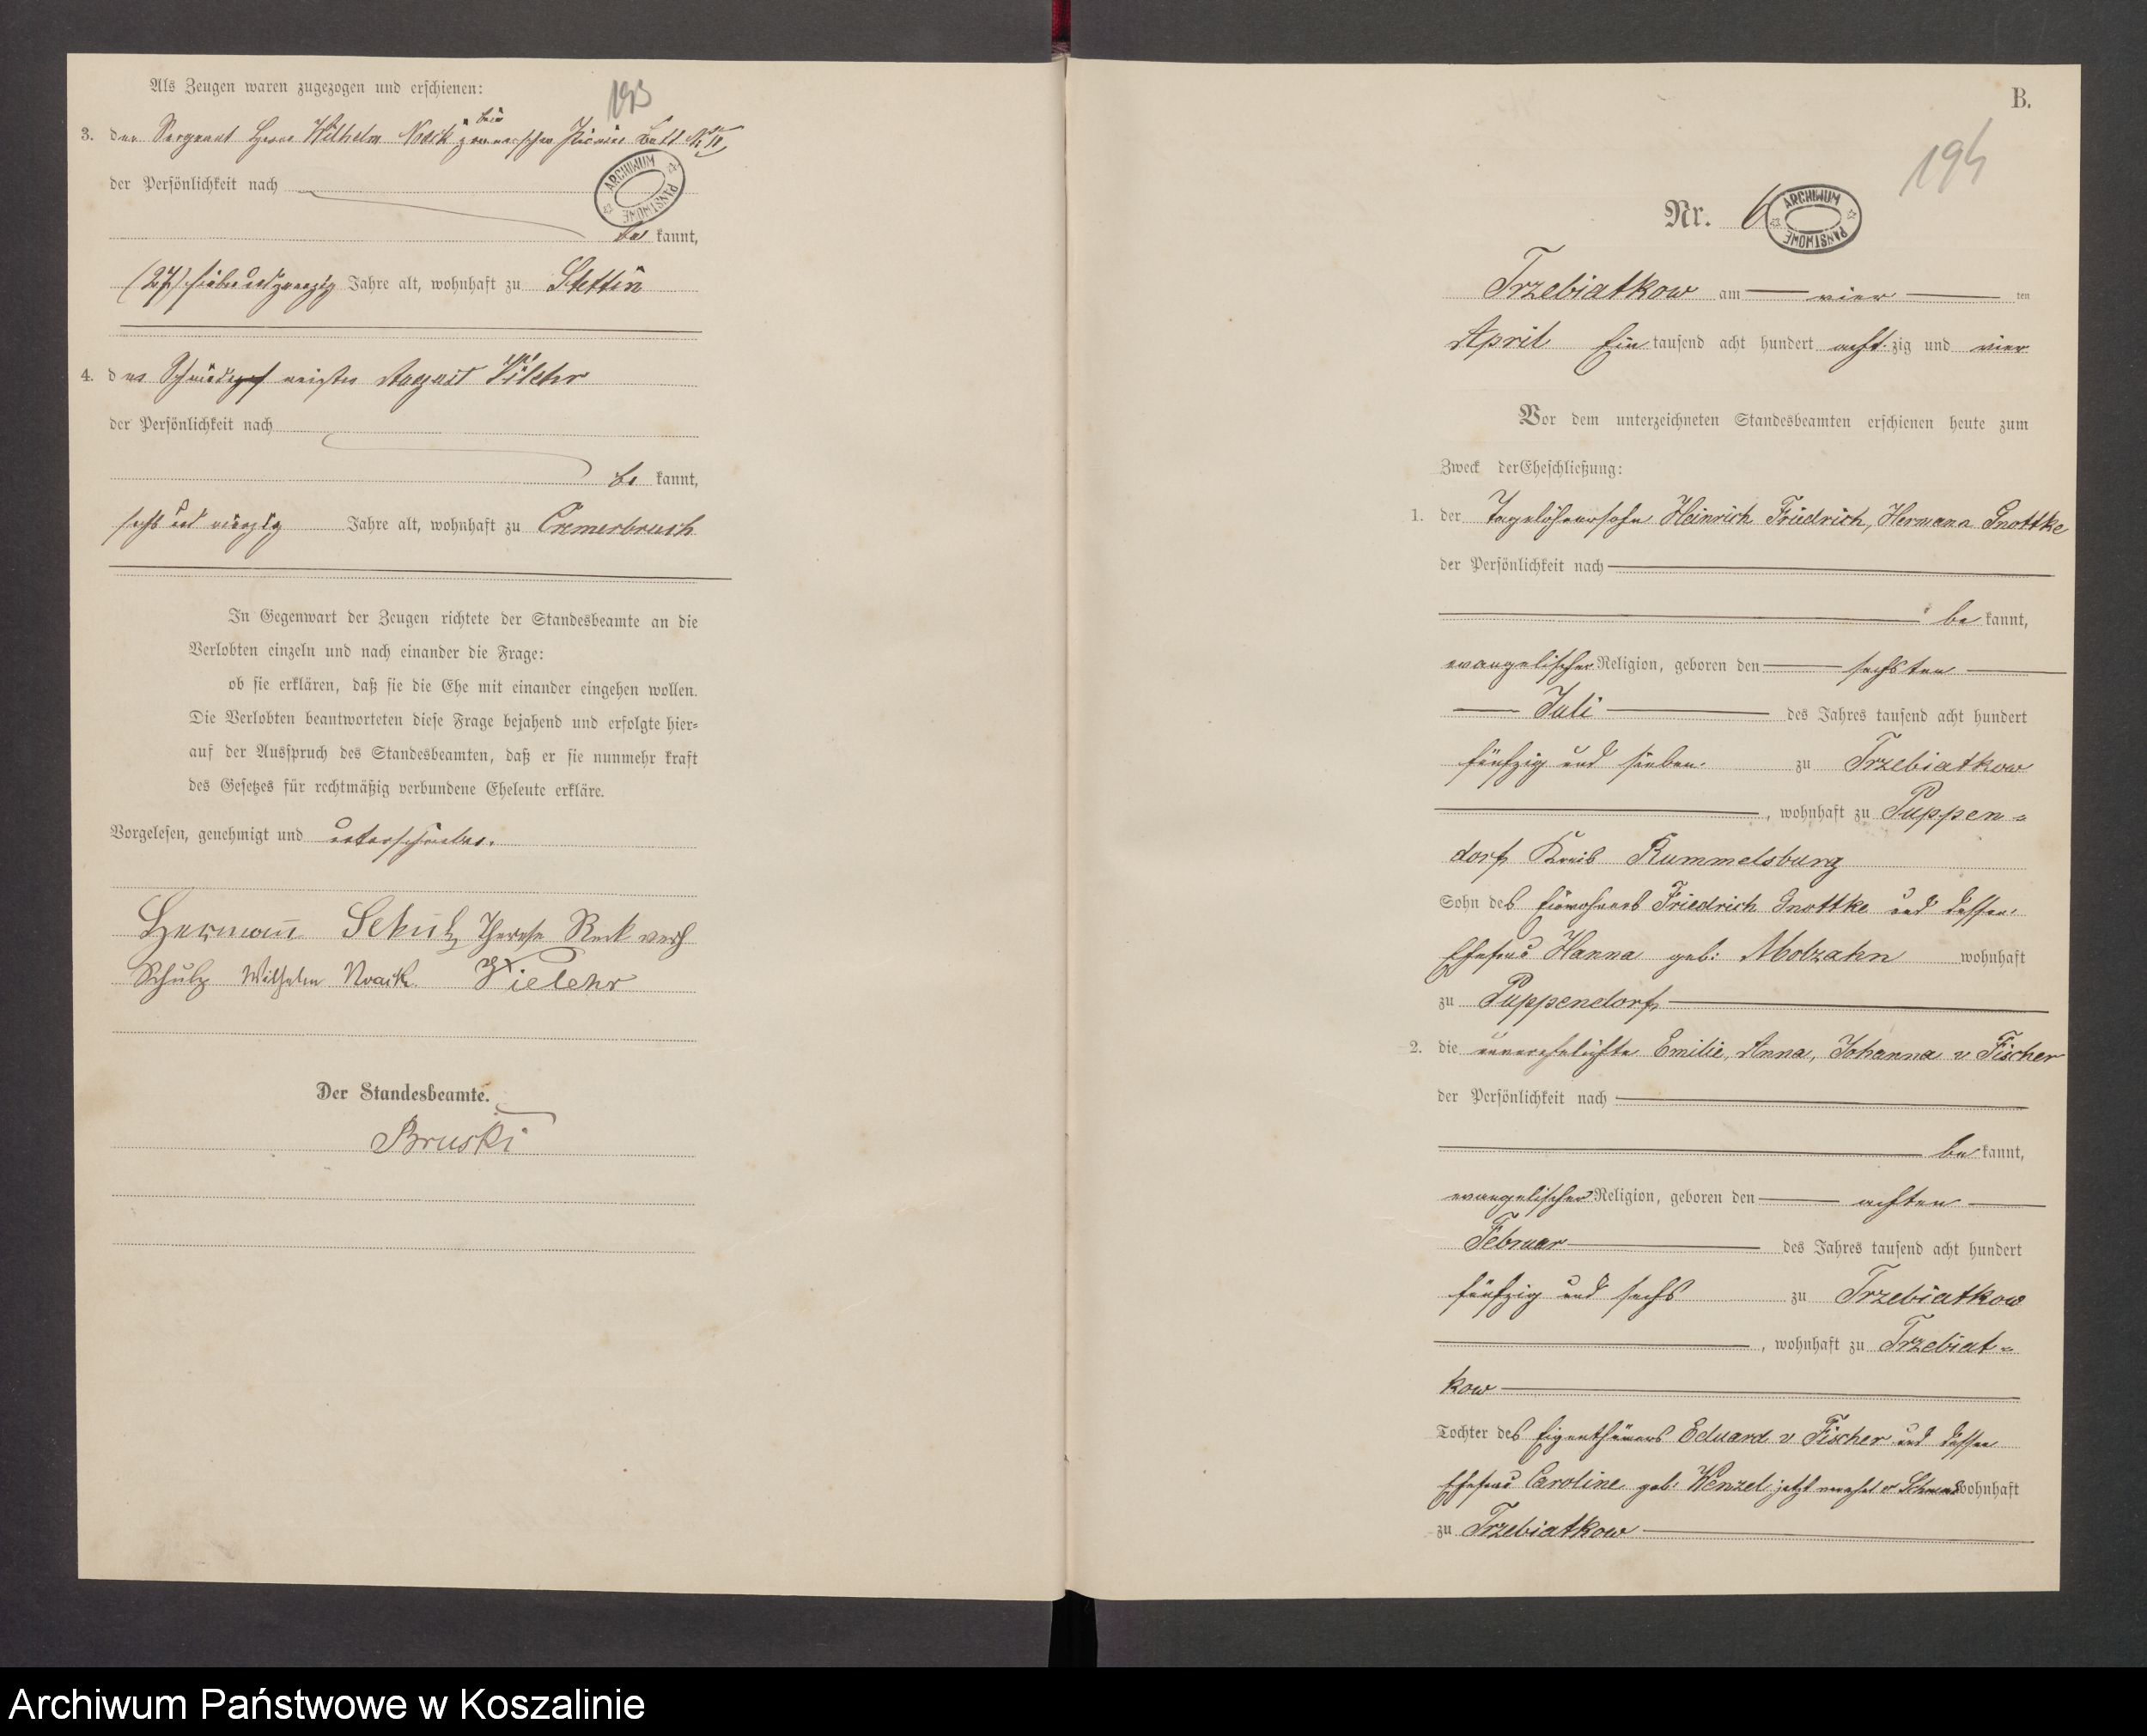 Als Zeugen waren zugezogen und erschienen:
193
3. der Sergeant Herr Wilhelm Noack beim Pommerschen Pionier Batl No II,
der Persönlichkeit nach
be kannt,
(27) sieben und zwanzig Jahre alt, wohnhaft zu Stettin
4. der Schmiede meister August Vilehr
der Persönlichkeit nach
be kannt,
sechs und vierzig Jahre alt, wohnhaft zu Cremerbruch
In Gegenwart der Zeugen richtete der Standesbeamte an die
Verlobten einzeln und nach einander die Frage:
ob sie erklären, daß sie die Ehe mit einander eingehen wollen.
Die Verlobten beantworteten diese Frage bejahend und erfolgte hier-
auf der Ausspruch des Standesbeamten, daß er sie nunmehr kraft
des Gesetzes für rechtmäßig verbundene Eheleute erkläre.
Vorgelesen, genehmigt und unterschrieben.
Hermann Schulz Therese Reck verh
Schulz Wilhelm Noack. Vielehr
Der Standesbeamte.
Bruski
ARCHIWUM PAŃSTWOWE
B.
194
Nr. 6
ARCHIWUM PAŃSTWOWE
Trzebiatkow am vier ten
April Ein tausend acht hundert acht zig und vier
Vor dem unterzeichneten Standesbeamten erschienen heute zum
Zweck der Eheschließung:
1. der Tagelöhnersohn Heinrich Friedrich, Hermann Gnottke
der Persönlichkeit nach
be kannt,
evangelischer Religion, geboren den sechsten
Juli des Jahres tausend acht hundert
fünfzig und sieben zu Trzebiatkow
, wohnhaft zu Puppen-
dorf Kreis Rummelsburg
Sohn des Einwohners Friedrich Gnottke und dessen
Ehefrau Hanna geb: Molzahn wohnhaft
zu Puppendorf
2. die unverehelichte Emilie, Anna, Johanna v Fischer
der Persönlichkeit nach
be kannt,
evangelischer Religion, geboren den achten
Februar des Jahres tausend acht hundert
fünfzig und sechs zu Trzebiatkow
, wohnhaft zu Trzebiat-
kow
Tochter des Eigenthümers Eduard v Fischer und dessen
Ehefrau Caroline geb: Wenzel jetzt verehel v wohnhaft
zu Trzebiatkow
Archiwum Państwowe w Koszalinie